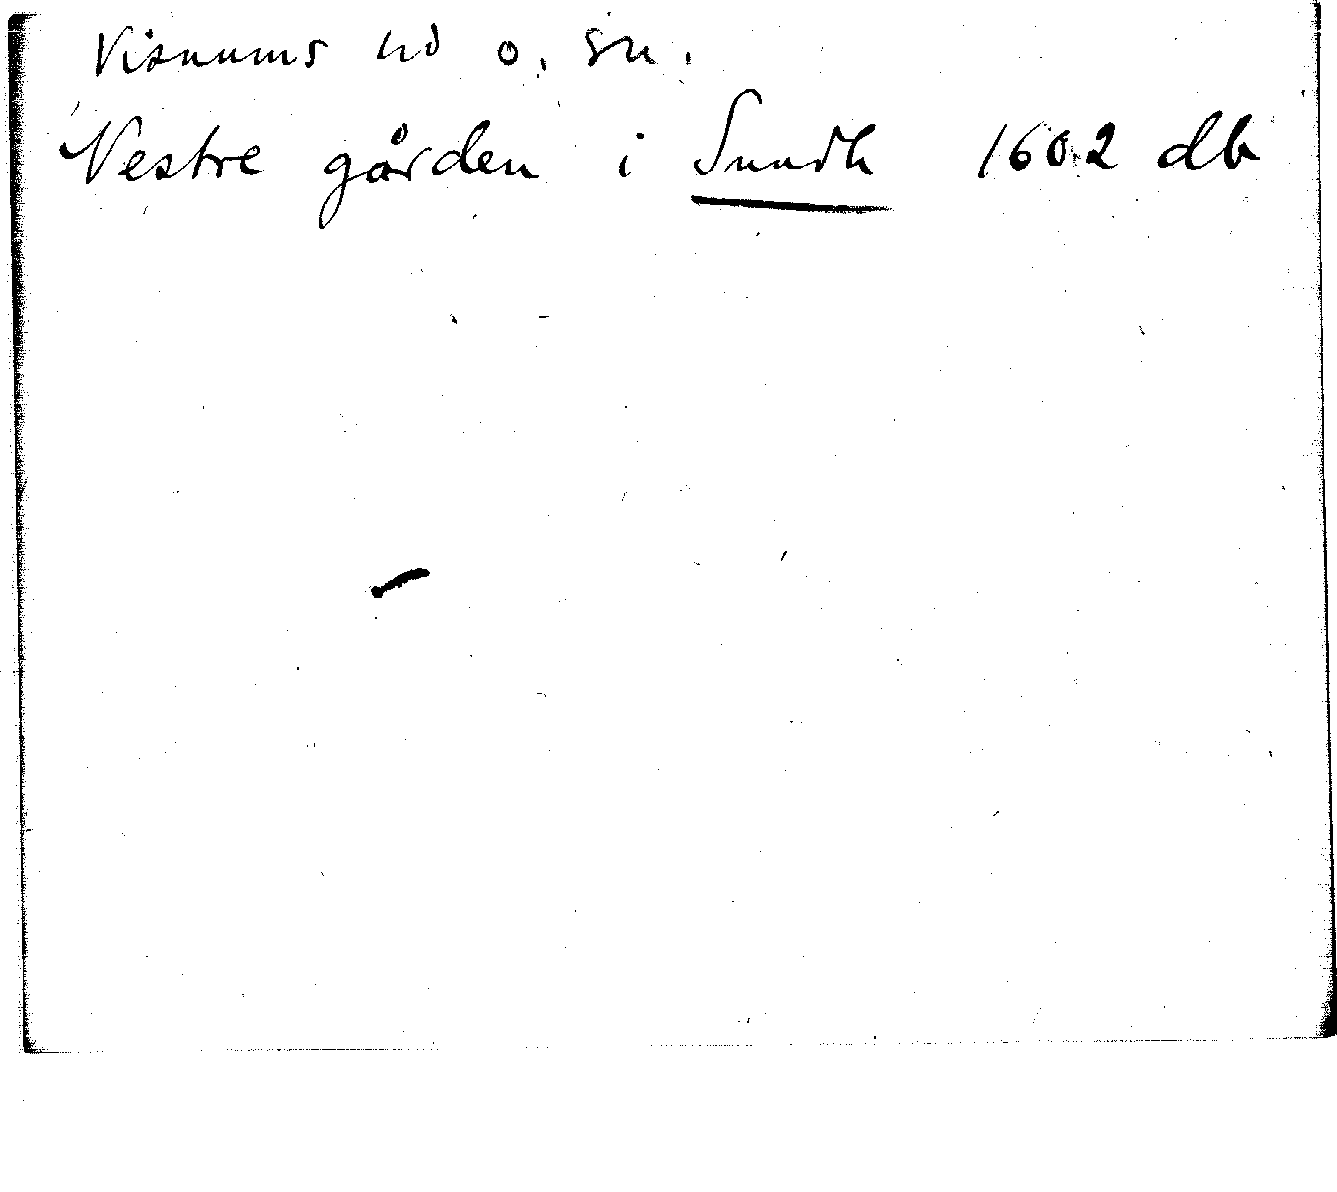 Visnums hd o. sn.
Vestre gården i Sundh 1602 db